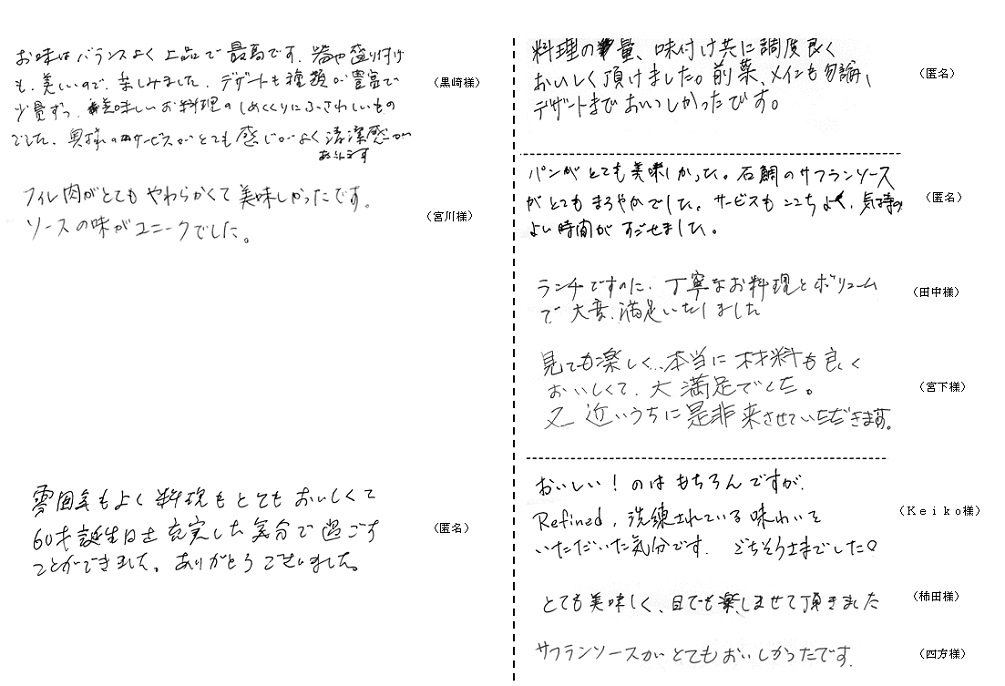 お味はバランスよく上品で最高です。器や盛り付け
も、美しいので、楽しみました。デザートも種類が豊富で
少量ずつ、美味しいお料理のしめくくりにふさわしいもの
でした。奥様のサービスがとても感じがよく清潔感が
あります
（黒﨑様）
フィレ肉がとてもやわらかくて美味しかったです。
ソースの味がユニークでした。
（宮川様）
雰囲気もよく料理もとてもおいしくて
60才誕生日を充実した気分で過ごす
ことができました。ありがとうございました。
（匿名）
料理の量、味付け共に調度良く
おいしく頂けました。前菜、メインも勿論、
デザートまでおいしかったです。
（匿名）
パンがとても美味しかった。石鯛のサフランソース
がとてもまろやかでした。サービスもここちよく、気持の
よい時間がすごせました。
（匿名）
ランチですのに、丁寧なお料理とボリューム
で大変満足いたしました
（田中様）
見ても楽しく、本当に材料も良く
おいしくて、大満足でした。
又近いうちに是非来させていただきます。
（宮下様）
おいしい！のはもちろんですが、
Refined、洗練されている味わいを
いただいた気分です。ごちそうさまでした。
（Ｋｅｉｋｏ様）
とても美味しく、目でも楽しませて頂きました
（柿田様）
サフランソースがとてもおいしかったです。
（四方様）